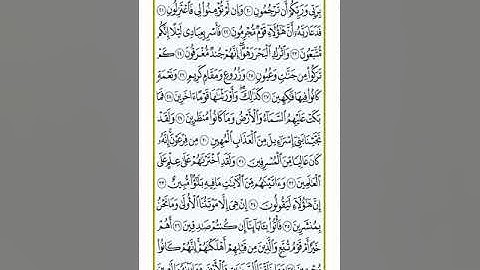 بِرَبِّي وَرَبِّكُمْ أَن تَرْجُمُونِ ٢٠ وَإِن لَّمْ تُؤْمِنُوا۟ لِى فَٱعْتَزِلُونِ ٢١
فَدَعَا رَبَّهُۥٓ أَنَّ هَٰٓؤُلَآءِ قَوْمٌ مُّجْرِمُونَ ٢٢ فَأَسْرِ بِعِبَادِى لَيْلًا إِنَّكُم
مُّتَّبَعُونَ ٢٣ وَٱتْرُكِ ٱلْبَحْرَ رَهْوًا ۖ إِنَّهُمْ جُندٌ مُّغْرَقُونَ ٢٤ كَمْ
تَرَكُوا۟ مِن جَنَّٰتٍ وَعُيُونٍ ٢٥ وَزُرُوعٍ وَمَقَامٍ كَرِيمٍ ٢٦ وَنَعْمَةٍ
كَانُوا۟ فِيهَا فَٰكِهِينَ ٢٧ كَذَٰلِكَ ۖ وَأَوْرَثْنَٰهَا قَوْمًا ءَاخَرِينَ ٢٨ فَمَا
بَكَتْ عَلَيْهِمُ ٱلسَّمَآءُ وَٱلْأَرْضُ وَمَا كَانُوا۟ مُنظَرِينَ ٢٩ وَلَقَدْ
نَجَّيْنَا بَنِىٓ إِسْرَٰٓءِيلَ مِنَ ٱلْعَذَابِ ٱلْمُهِينِ ٣٠ مِن فِرْعَوْنَ ۚ إِنَّهُۥ
كَانَ عَالِيًا مِّنَ ٱلْمُسْرِفِينَ ٣١ وَلَقَدِ ٱخْتَرْنَٰهُمْ عَلَىٰ عِلْمٍ عَلَى
ٱلْعَٰلَمِينَ ٣٢ وَءَاتَيْنَٰهُم مِّنَ ٱلْءَايَٰتِ مَا فِيهِ بَلَٰٓؤٌا۟ مُّبِينٌ ٣٣
إِنَّ هَٰٓؤُلَآءِ لَيَقُولُونَ ٣٤ إِنْ هِىَ إِلَّا مَوْتَتُنَا ٱلْأُولَىٰ وَمَا نَحْنُ
بِمُنشَرِينَ ٣٥ فَأْتُوا۟ بِـَٔابَآئِنَآ إِن كُنتُمْ صَٰدِقِينَ ٣٦ أَهُمْ
خَيْرٌ أَمْ قَوْمُ تُبَّعٍ وَٱلَّذِينَ مِن قَبْلِهِمْ ۚ أَهْلَكْنَٰهُمْ ۖ إِنَّهُمْ كَانُوا۟